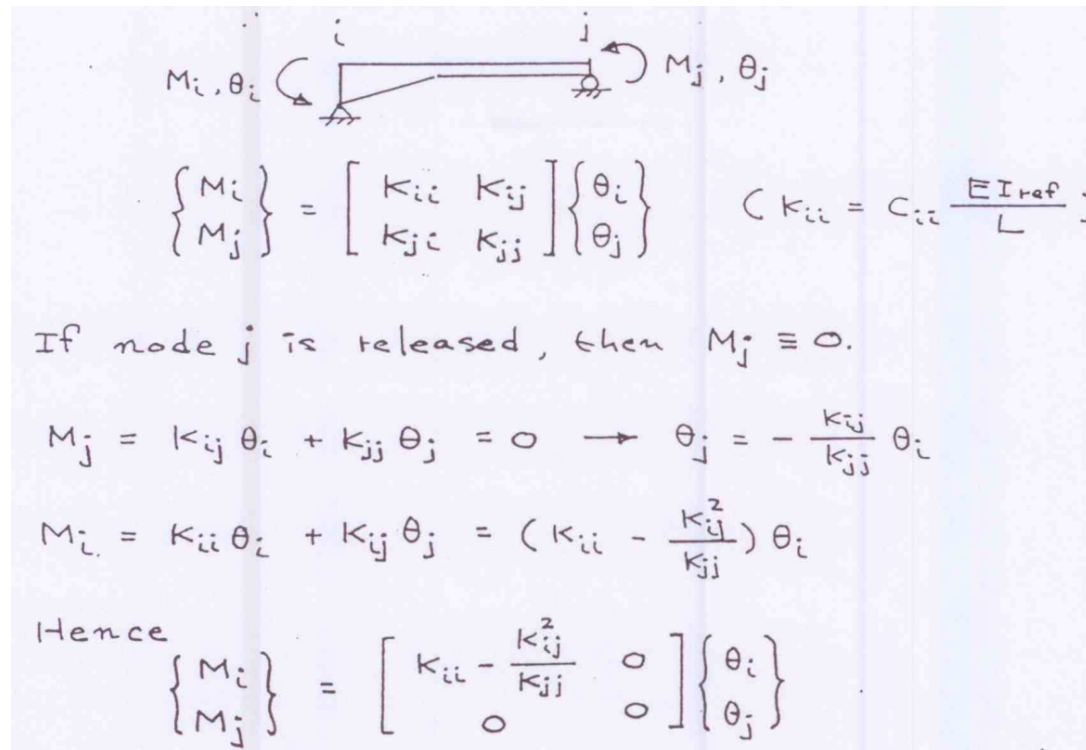 i j
M_i, θ_i M_j, θ_j
{M_i M_j} = [K_ii K_ij K_ji K_jj] {θ_i θ_j} (K_ii = C_ii EI_ref/L
If node j is released, then M_j ≡ 0.
M_j = K_ij θ_i + K_jj θ_j = 0 → θ_j = - K_ij/K_jj θ_i
M_i = K_ii θ_i + K_ij θ_j = (K_ii - K_ij²/K_jj) θ_i
Hence
{M_i M_j} = [K_ii - K_ij²/K_jj 0 0 0] {θ_i θ_j}